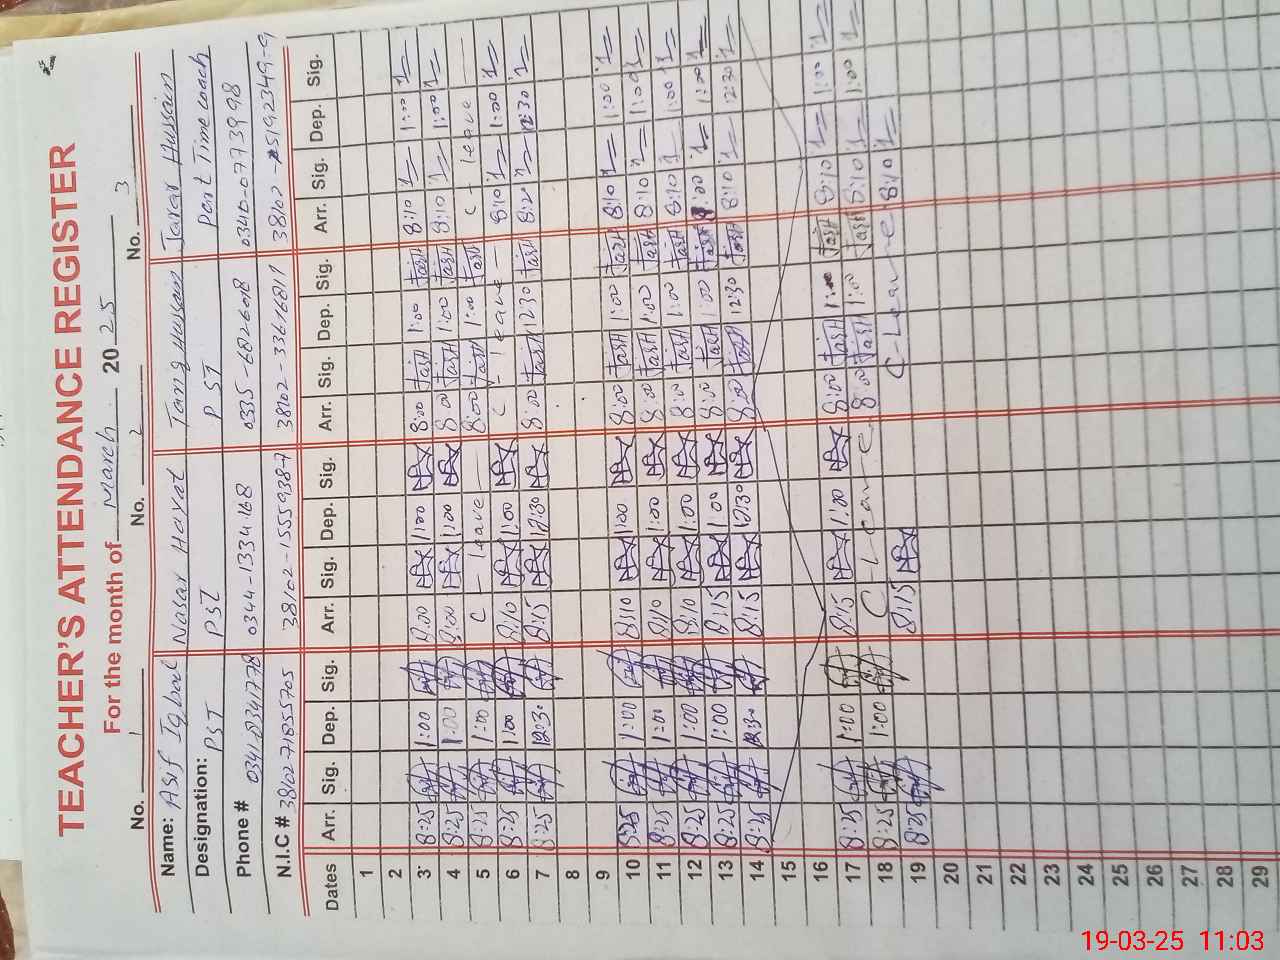 TEACHER'S ATTENDANCE REGISTER
For the month of March 2025
No. 1 No. 2 No. 3
Name: Asif Iqbal Nasar Hayat Tariq Hussain Hussain
Designation: PST PST PST Part Time coach
Phone # 0341-8341778 0344-1334168 0335-6826018 0340-0773998
N.I.C # 3810271855765 38102-1555938-7 38102-3361681-9
Dates Arr. Sig. Dep. Sig. Arr. Sig. Dep. Sig. Arr. Sig. Dep. Sig. Arr. Sig. Dep. Sig.
1
2
3 8:25 1:00 8:00 1:00 8:00 1:00 8:10 1:00
4 8:25 1:00 8:00 1:00 8:00 1:00 8:10 1:00
5 8:25 1:00 C - leave 8:00 1:00 C - leave
6 8:25 1:00 8:10 1:00 C - leave 8:10 1:00
7 8:25 12:30 8:15 12:30 8:00 12:30 8:20 12:30
8
9
10 8:25 1:00 8:10 1:00 8:00 1:00 8:10 1:00
11 8:25 1:00 8:10 1:00 8:00 1:00 8:10 1:00
12 8:25 1:00 8:10 1:00 8:00 1:00 8:10 1:00
13 8:25 1:00 8:15 1:00 8:00 1:00 8:00 1:00
14 8:25 12:30 8:15 12:30 8:00 12:30 8:10 12:30
15
16
17 8:25 1:00 8:15 1:00 8:00 1:00 8:10 1:00
18 8:25 1:00 C - Leave 8:00 1:00 8:10 1:00
19 8:25 8:15 C - Leave 8:10
20
21
22
23
24
25
26
27
28
29
19-03-25 11:03